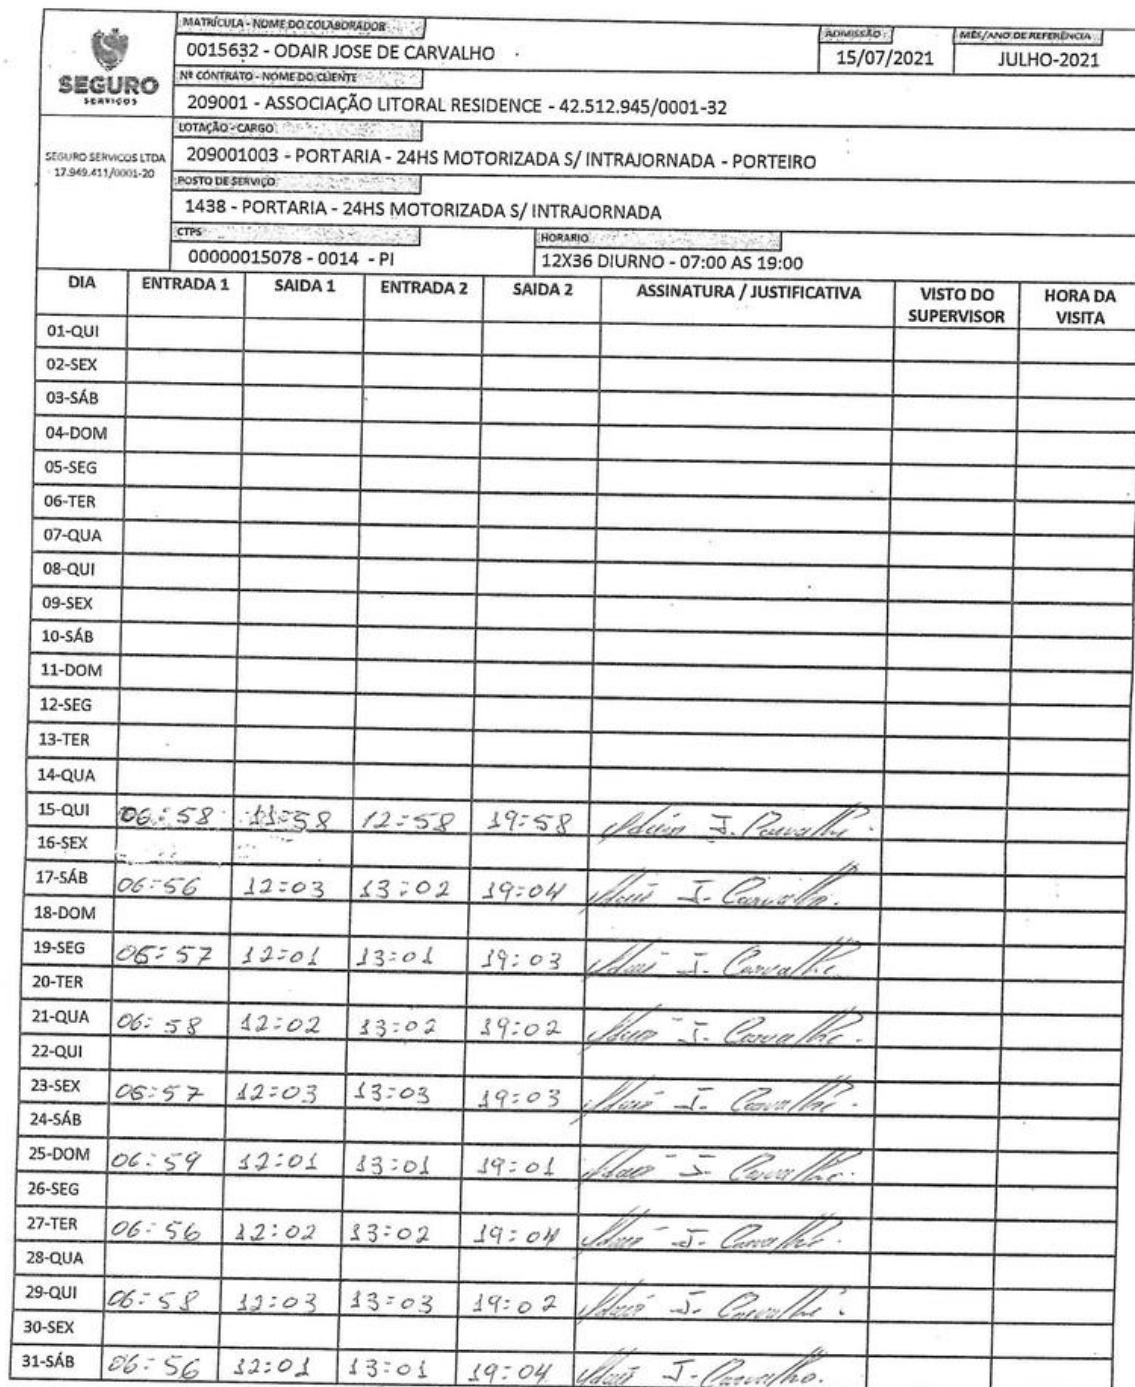 SEGURO
SERVIÇOS
SEGURO SERVICOS LTDA
17.949.411/0001-20
MATRÍCULA - NOME DO COLABORADOR
0015632 - ODAIR JOSE DE CARVALHO
ADMISSÃO
15/07/2021
MÊS/ANO DE REFERÊNCIA
JULHO-2021
Nº CONTRATO - NOME DO CLIENTE
209001 - ASSOCIAÇÃO LITORAL RESIDENCE - 42.512.945/0001-32
LOTAÇÃO - CARGO
209001003 - PORTARIA - 24HS MOTORIZADA S/ INTRAJORNADA - PORTEIRO
POSTO DE SERVIÇO
1438 - PORTARIA - 24HS MOTORIZADA S/ INTRAJORNADA
CTPS
00000015078 - 0014 - PI
HORARIO
12X36 DIURNO - 07:00 AS 19:00
DIA ENTRADA 1 SAIDA 1 ENTRADA 2 SAIDA 2 ASSINATURA / JUSTIFICATIVA VISTO DO SUPERVISOR HORA DA VISITA
01-QUI
02-SEX
03-SÁB
04-DOM
05-SEG
06-TER
07-QUA
08-QUI
09-SEX
10-SÁB
11-DOM
12-SEG
13-TER
14-QUA
15-QUI 06:58 11:58 12:58 19:58 J. Carvalho.
16-SEX
17-SÁB 06:56 12:03 13:02 19:04 J. Carvalho.
18-DOM
19-SEG 06:57 12:01 13:01 19:03 J. Carvalho.
20-TER
21-QUA 06:58 12:02 13:02 19:02 J. Carvalho.
22-QUI
23-SEX 06:57 12:03 13:03 19:03 J. Carvalho.
24-SÁB
25-DOM 06:59 12:01 13:01 19:01 J. Carvalho.
26-SEG
27-TER 06:56 12:02 13:02 19:04 J. Carvalho.
28-QUA
29-QUI 06:58 12:03 13:03 19:02 J. Carvalho.
30-SEX
31-SÁB 06:56 12:01 13:01 19:04 J. Carvalho.